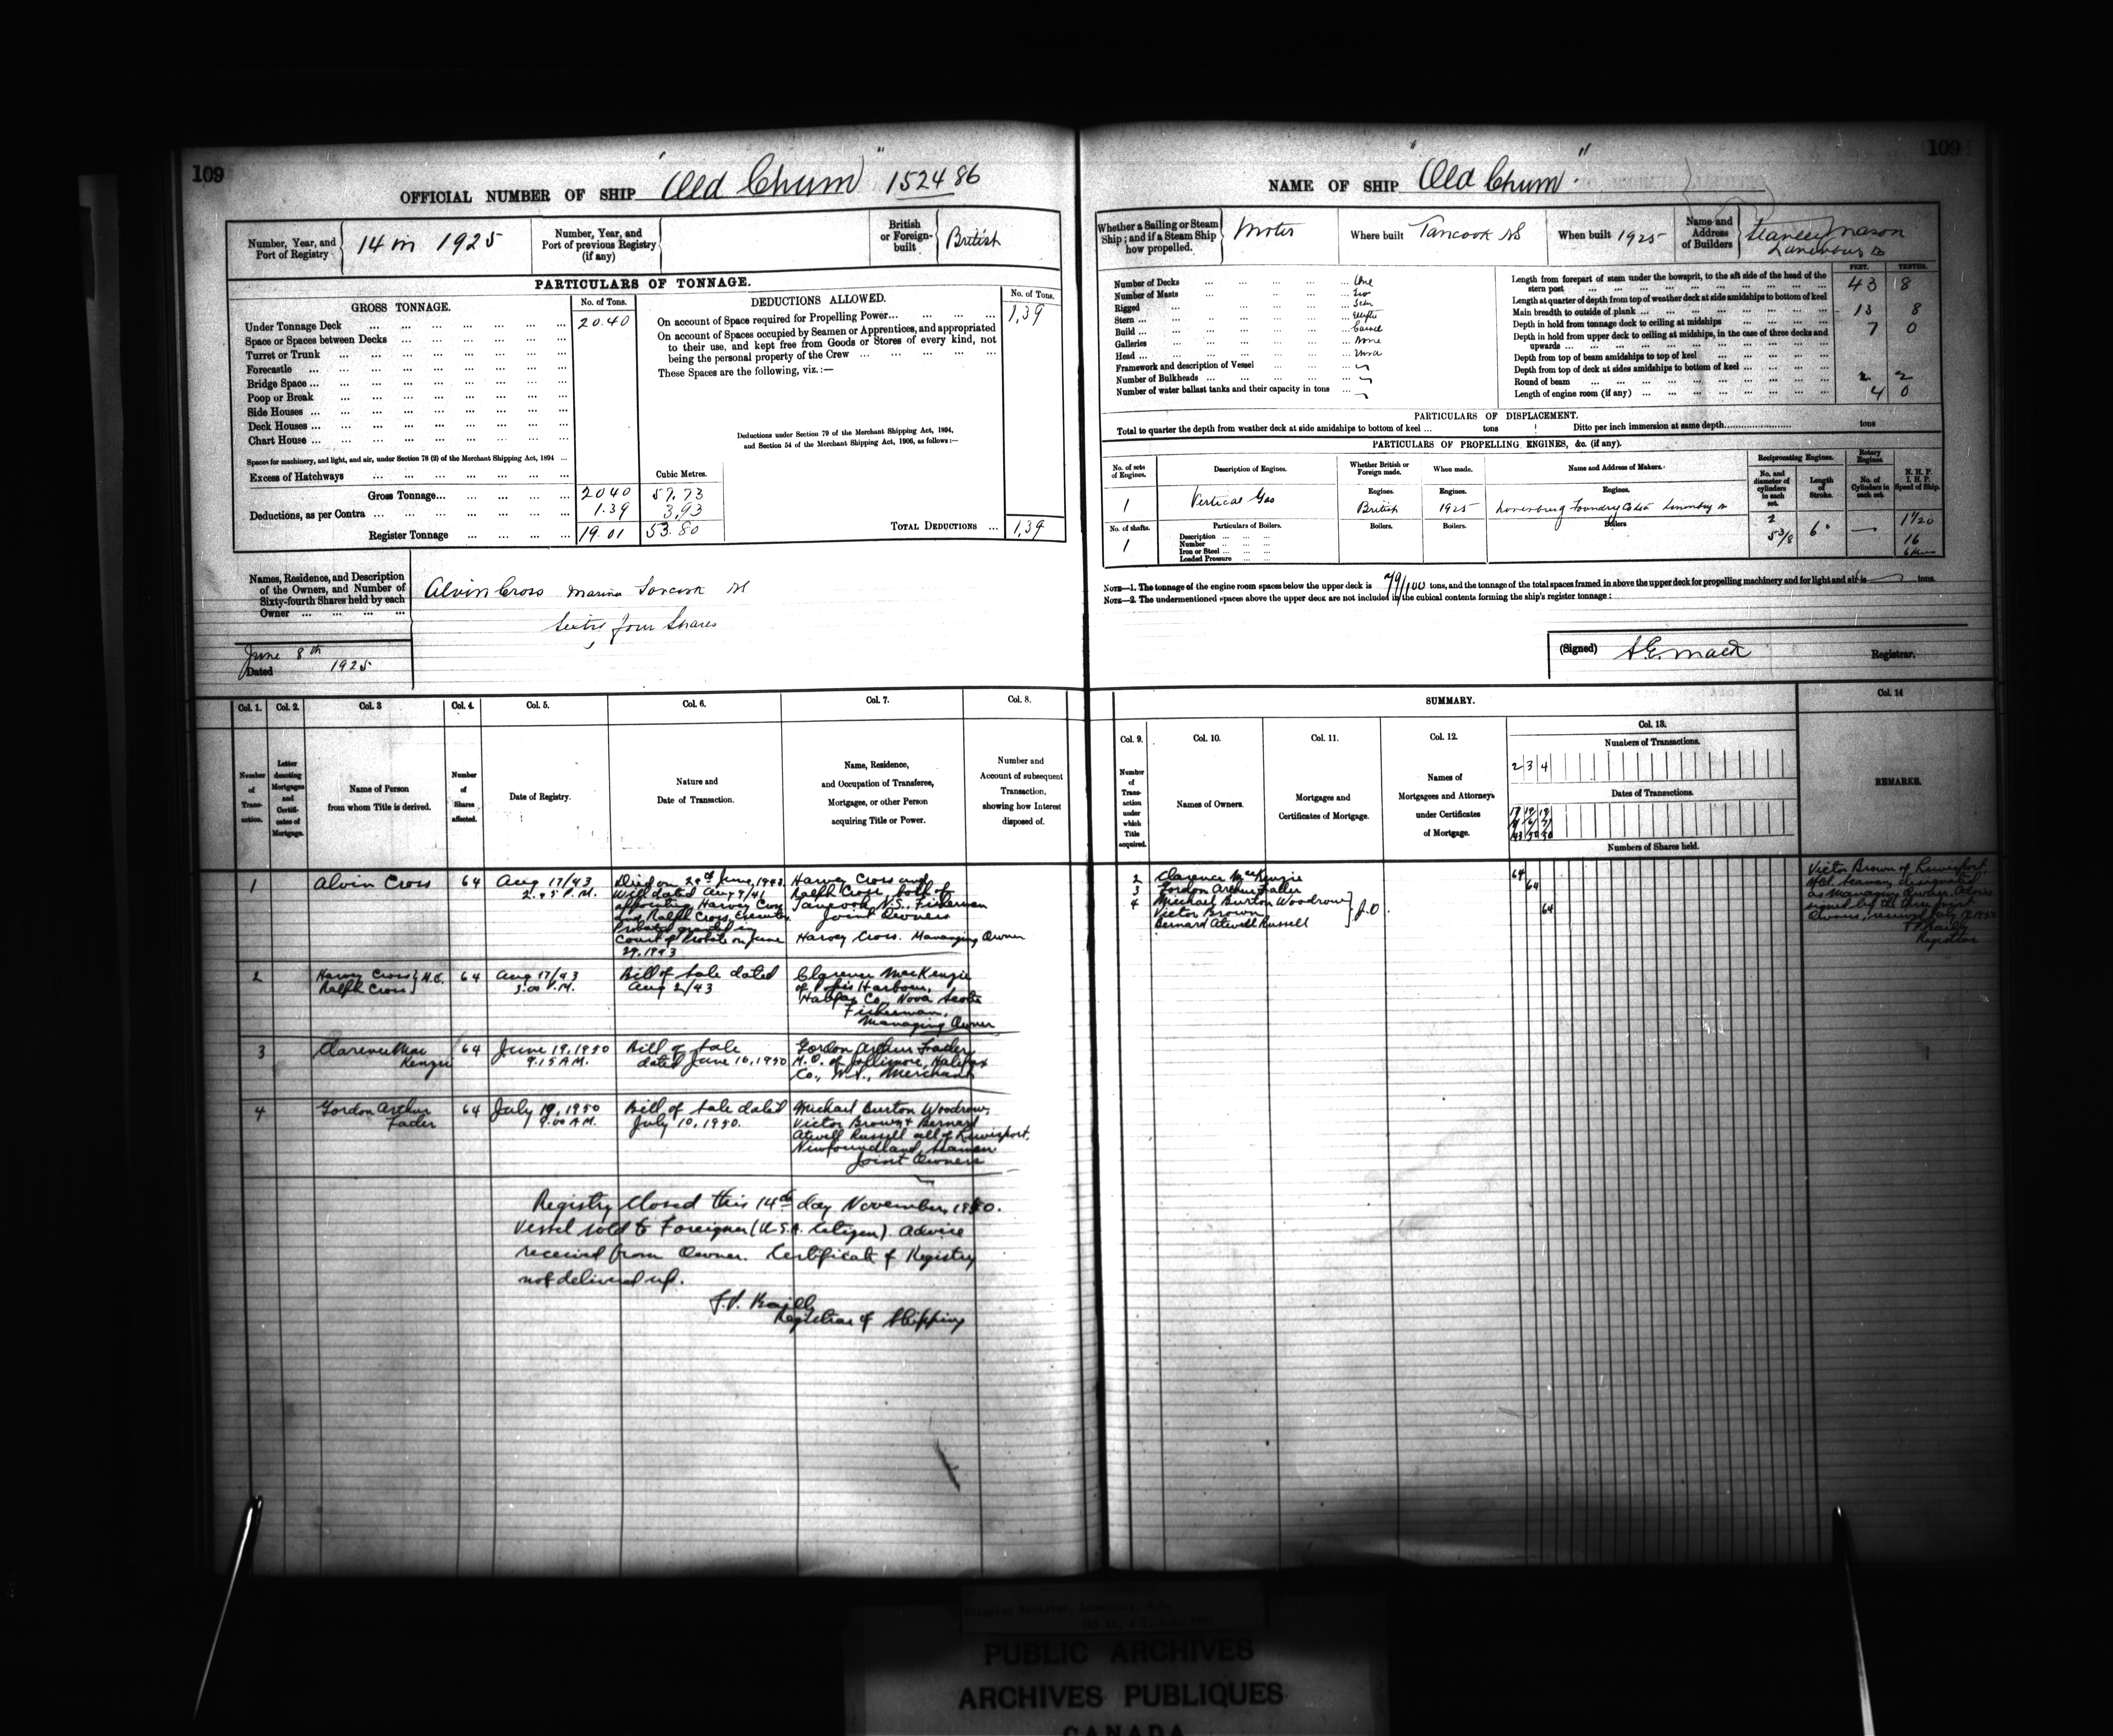 109
OFFICIAL NUMBER OF SHIP "Old Chum" 152486
Number, Year, and Port of Registry
14 in 1925
Number, Year, and Port of previous Registry (if any)
British or Foreign-built
British
PARTICULARS OF TONNAGE.
GROSS TONNAGE.
No. of Tons.
Under Tonnage Deck 20.40
Space or Spaces between Decks
Turret or Trunk
Forecastle
Bridge Space
Poop or Break
Side Houses
Deck Houses
Chart House
Spaces for machinery, and light, and air, under Section 78 (2) of the Merchant Shipping Act, 1894
Excess of Hatchways
Cubic Metres.
Gross Tonnage 20 40 57.73
Deductions, as per Contra 1.39 3.93
Register Tonnage 19.01 53.80
DEDUCTIONS ALLOWED.
No. of Tons.
On account of Space required for Propelling Power 1.39
On account of Spaces occupied by Seamen or Apprentices, and appropriated
to their use, and kept free from Goods or Stores of every kind, not
being the personal property of the Crew
These Spaces are the following, viz.:—
Deductions under Section 79 of the Merchant Shipping Act, 1894,
and Section 54 of the Merchant Shipping Act, 1906, as follows:—
TOTAL DEDUCTIONS 1.39
Names, Residence, and Description
of the Owners, and Number of
Sixty-fourth Shares held by each
Owner
Alvin Cross Tancook NS
Sixty four Shares
June 8th
Dated 1925
Col. 1. Col. 2. Col. 3 Col. 4. Col. 5. Col. 6. Col. 7. Col. 8.
Number of Transaction.
Letter denoting Mortgages and Certificates of Mortgage.
Name of Person from whom Title is derived.
Number of Shares affected.
Date of Registry.
Nature and Date of Transaction.
Name, Residence, and Occupation of Transferee, Mortgagee, or other Person acquiring Title or Power.
Number and Account of subsequent Transaction, showing how Interest disposed of.
1 Alvin Cross 64 Aug 17/43
2.45 P.M.
Died on June, 1943
Will dated Aug 9/41
appointing Harvey Cross
and Ralph Cross, Executors
Probate granted in
Court of Probate on June
29, 1943
Harvey Cross and
Ralph Cross, both of
Tancook, N.S., Fishermen
Joint Owners
Harvey Cross. Managing Owner
2 Harvey Cross
Ralph Cross
64 Aug 17/43
3.00 P.M.
Bill of Sale dated
Aug 2/43
Clarence MacKenzie
of Popes Harbour,
Halifax Co., Nova Scotia
Fisherman,
Managing Owner
3 Clarence Mac
Kenzie
64 June 19, 1950
9.15 A.M.
Bill of Sale
dated June 10, 1950
Gordon Arthur Fader
M.O. of Jollimore, Halifax
Co., N.S., Merchant
4 Gordon Arthur
Fader
64 July 19, 1950
9.00 A.M.
Bill of Sale dated
July 10, 1950.
Michael Burton Woodrow,
Victor Brown & Bernard
Atwell Russell all of Lewisport,
Newfoundland, Seamen
Joint Owners
Registry Closed this 14th day November, 1950.
Vessel sold to Foreigner (U.S.A. Citizen). Advice
received from Owner. Certificate of Registry
not delivered up.
Registrar of Shipping
109
NAME OF SHIP "Old Chum"
Whether a Sailing or Steam
Ship; and if a Steam Ship
how propelled.
Motor
Where built Tancook NS
When built 1925
Name and Address of Builders
Stanley Mason
Number of Decks One
Number of Masts Two
Rigged Schr
Stern
Build Carvel
Galleries None
Head
Framework and description of Vessel
Number of Bulkheads
Number of water ballast tanks and their capacity in tons
FEET. TENTHS.
Length from forepart of stem under the bowsprit, to the aft side of the head of the
stern post 43 8
Length at quarter of depth from top of weather deck at side amidships to bottom of keel
Main breadth to outside of plank 13 8
Depth in hold from tonnage deck to ceiling at midships 7 0
Depth in hold from upper deck to ceiling at midships, in the case of three decks and
upwards
Depth from top of beam amidships to top of keel
Depth from top of deck at sides amidships to bottom of keel
Round of beam 2 2
Length of engine room (if any) 4 0
PARTICULARS OF DISPLACEMENT.
Total to quarter the depth from weather deck at side amidships to bottom of keel tons Ditto per inch immersion at same depth tons
PARTICULARS OF PROPELLING ENGINES, &c. (if any).
No. of sets of Engines.
Description of Engines.
Whether British or Foreign made.
When made.
Name and Address of Makers.
Reciprocating Engines.
Rotary Engines.
No. and diameter of cylinders in each set.
Length of Stroke.
No. of Cylinders in each set.
N. H. P.
I. H. P.
Speed of Ship.
Engines. Engines. Engines.
1 Vertical Gas British 1925
2
5 3/8 6"
16
No. of shafts. Particulars of Boilers. Boilers. Boilers. Boilers
1
Description
Number
Iron or Steel
Loaded Pressure
NOTE—1. The tonnage of the engine room spaces below the upper deck is 79/100 tons, and the tonnage of the total spaces framed in above the upper deck for propelling machinery and for light and air is tons.
NOTE—2. The undermentioned spaces above the upper deck are not included in the cubical contents forming the ship's register tonnage:
(Signed) Mack Registrar.
SUMMARY.
Col. 9. Col. 10. Col. 11. Col. 12. Col. 13. Col. 14
Number of Transaction under which Title acquired.
Names of Owners.
Mortgages and Certificates of Mortgage.
Names of Mortgagees and Attorneys under Certificates of Mortgage.
Numbers of Transactions.
2 3 4
Dates of Transactions.
Numbers of Shares held.
REMARKS.
2 Clarence MacKenzie 64
3 Gordon Arthur Fader 64
4 Michael Burton Woodrow
Victor Brown
Bernard Atwell Russell
J.O. 64
Victor Brown of Lewisport,
Nfld, Seaman, designated
as Managing Owner. Advice
signed by the three joint
Owners, received July 19, 1950
Registrar
PUBLIC ARCHIVES
ARCHIVES PUBLIQUES
CANADA